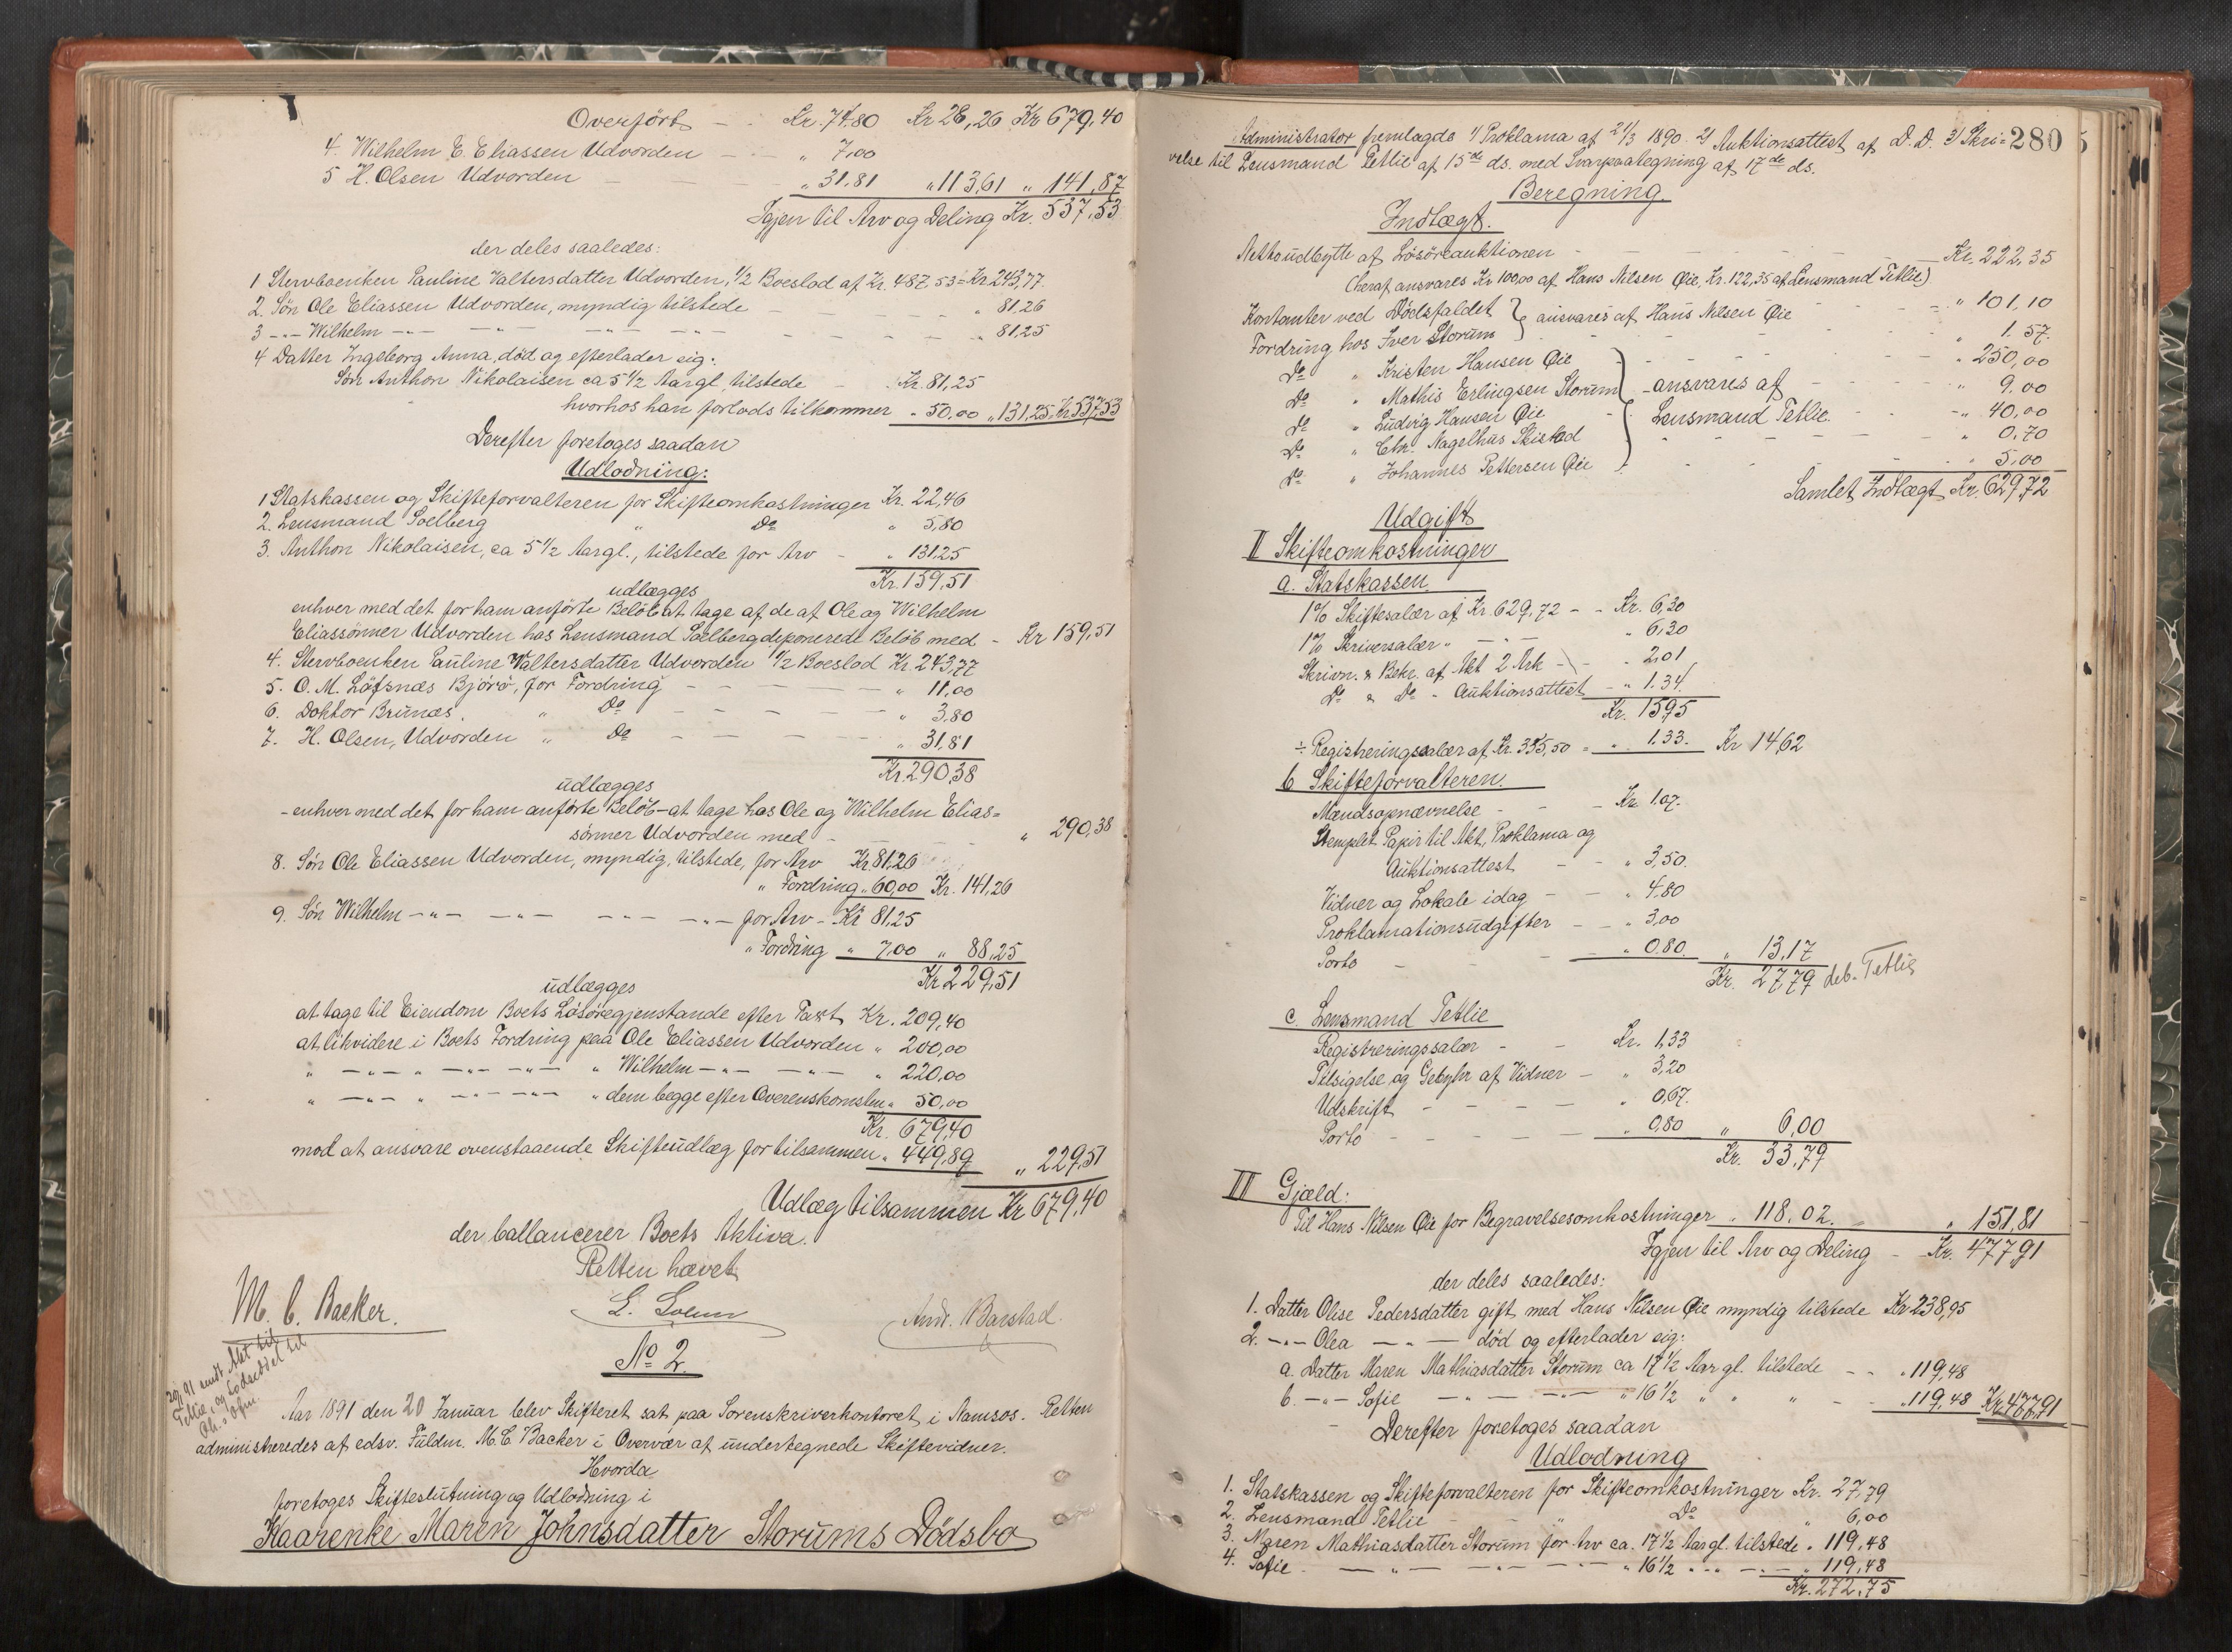 Overført - - Kr. 74.80 Kr 28,26 Kr 679,40
4. Wilhelm E. Eliassen Udvorden - - " 7,00
5 H. Olsen Udvorden - - " 31,81 " 113,61 " 141,87
Igjen til Arv og Deling Kr. 537,53
der deles saaledes:
1 Stervboenken Pauline Valtersdatter Udvorden, 1/2 Boeslod af Kr. 487,53 = Kr 243,77
2. Søn Ole Eliassen Udvorden, myndig tilstede - - " 81,26
3 -"- Wilhelm -"- -"- -"- -"- - - " 81,25
4 Datter Ingeborg Anna, død og efterlader sig:
Søn Anthon Nikolaisen ca 5 1/2 Aargl. tilstede - Kr. 81,25
hvorhos han forlods tilkommer " 50,00 " 131,25 Kr 537,53
Derefter foretoges saadan
Udlodning:
1 Statskassen og Skifteforvalteren for Skifteomkostninger Kr. 22,46
2. Lensmand Soelberg " Do " 5,80
3. Anthon Nikolaisen, ca 5 1/2 Aargl., tilstede for Arv - " 131,25
Kr. 159,51
udlægges
enhver med det for ham anførte Beløb at tage af de af Ole og Wilhelm
Eliassønner Udvorden hos Lensmand Soelberg deponerede Beløb med - Kr 159,51
4. Stervboenken Pauline Waltersdatter Udvorden 1/2 Boeslod Kr. 243,77
5. O. M. Löfsnæs Björö, for Fordring - - " 11,00
6. Doktor Brunæs. " Do - - " 3,80
7. H. Olsen, Udvorden " Do - - " 31,81
Kr. 290,38
udlægges
- enhver med det for ham anførte Beløb - at tage hos Ole og Wilhelm Elias=
sønner Udvorden med - - " 290,38
8. Søn Ole Eliassen Udvorden, myndig, tilstede, for Arv Kr 81,26
" Fordring " 60,00 Kr. 141,26
9. Søn Wilhelm -"- -"- -"- -"- for Arv - Kr 81,25
" Fordring " 7,00 " 88,25
Kr 229,51
udlægges
at tage til Eiendom Boets Løsøregjenstande efter Taxt Kr. 209,40
at likvidere i Boets Fordring paa Ole Eliassen Udvorden " 200,00
" -"- " -"- -"- " Wilhelm -"- -"- " 220,00
" -"- " -"- -"- " dem begge efter Overenskomsten " 50,00
Kr. 679,40
mod at ansvare ovenstaaende Skifteudlæg for tilsammen " 449,89 " 229,51
Udlæg tilsammen Kr 679,40
der ballancerer Boets Aktiva.
Retten hævet
M. C. Backer. L. Solum And. Barstad.
No 2.
20/1 91 sendt Akt til
Tetlie, og Lodseddel til
Aar 1891 den 20 Januar blev Skifteret sat paa Sorenskriverkontoret i Namsos. Retten
administreredes af edsv. Fuldm. M. C. Backer i Overvær af undertegnede Skiftevidner.
Hvorda
foretoges Skifteslutning og Udlodning i
Kaarenke Maren Johnsdatter Storums Dødsbo
280
Administrator fremlagde 1) Proklama af 21/3 1890. 2) Auktionsattest af D. D. 3) Skri=
velse til Lensmand Tetlie af 15de ds. med Svarpaategning af 17de ds.
Beregning.
Indtægt.
Nettoudbytte af Løsøreauktionen - - Kr. 222,35
(heraf ansvares Kr 100,00 af Hans Nilsen Øie, Kr. 122,35 af Lensmand Tetlie)
Kontanter ved Dødsfaldet } ansvares af Hans Nilsen Øie - " 101,10
Fordring hos Iver Storum - - " 1.57.
Do " Kristen Hansen Øie - - " 250,00
Do " Mathis Erlingsen Storum - ansvares af - - " 9.00
Do " Ludvig Hansen Øie - Lensmand Tetlie. - - " 40,00
Do " Chr. Nagelhus Skistad - - " 0.70
Do " Johannes Pettersen Øie - - " 5,00
Samlet Indtægt Kr. 629,72
Udgift
II Skifteomkostninger
a. Statskassen.
1% Skiftesalær af Kr 629,72 - - Kr. 6,30
1% Skriversalær " - - " 6,30
Skrivn. & Bekr. af Akt 2 Ark - - " 2,01
Do & Do " Auktionsattest - " 1.34.
Kr. 15,95
÷ Registreringssalær af Kr. 335,50 = " 1.33. Kr 14,62
b Skifteforvalteren.
Mændsopnævnelse - - Kr. 1.07.
Stemplet Papir til Akt, Proklama og
Auktionsattest - - " 3,50.
Vidner og Lokale idag - - " 4,80
Proklamationsudgifter - - " 3,00
Porto - - " 0,80. " 13,17
Kr. 27,79 deb. Tetlie
c. Lensmand Tetlie
Registreringssalær - - Kr. 1,33
Tilsigelse og Gebyhr af Vidner - " 3,20
Udskrift - - " 0,67.
Porto - - " 0,80 " 6,00
Kr. 33,79
III Gjæld:
Til Hans Nilsen Øie for Begravelsesomkostninger " 118.02. " 151,81
Igjen til Arv og Deling - Kr. 477,91
der deles saaledes:
1. Datter Olise Pedersdatter gift med Hans Nilsen Øie myndig tilstede Kr 238,95
2. -"- Olea -"- død og efterlader sig:
a. Datter Maren Mathiasdatter Storum ca 17 1/2 Aargl. tilstede - - " 119,48
b. -"- Sofie -"- -"- " 16 1/2 " " " - " 119,48 Kr 477,91
Derefter foretoges saadan
Udlodning
1. Statskassen og Skifteforvalteren for Skifteomkostninger Kr. 27,79
2. Lensmand Tetlie - " Do " 6,00
3. Maren Mathiasdatter Storum for Arv ca. 17 1/2 Aargl. tilstede " 119,48
4. Sofie. -"- -"- " 16 1/2 " " -"- " 119,48
Kr. 272,75